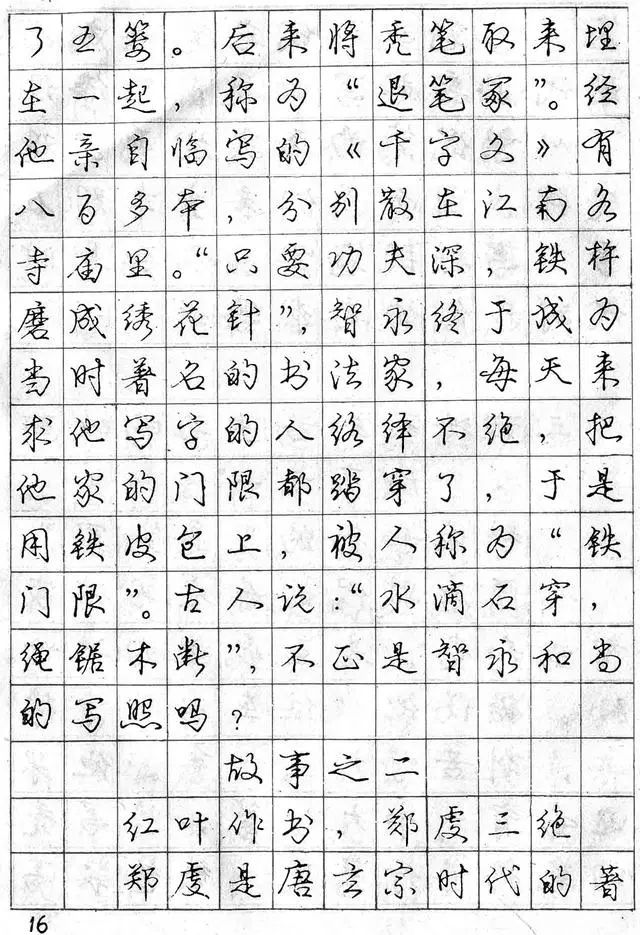 了五篓。后来将秃笔取来埋
在一起，称为“退笔冢”。经
他亲自临写的《千字文》有
八百多本，分别散在江南各
寺庙里。“只要功夫深，铁杵
磨成绣花针”，智永终于成为
当时著名的书法家，每天来
求他写字的人络绎不绝，把
他家的门限都踏穿了，于是
用铁皮包上，被人称为“铁
门限”。古人说：“水滴石穿，
绳锯木断”，不正是智永和尚
的写照吗？
故事之二
红叶作书，郑虔三绝
郑虔是唐玄宗时代的著
16